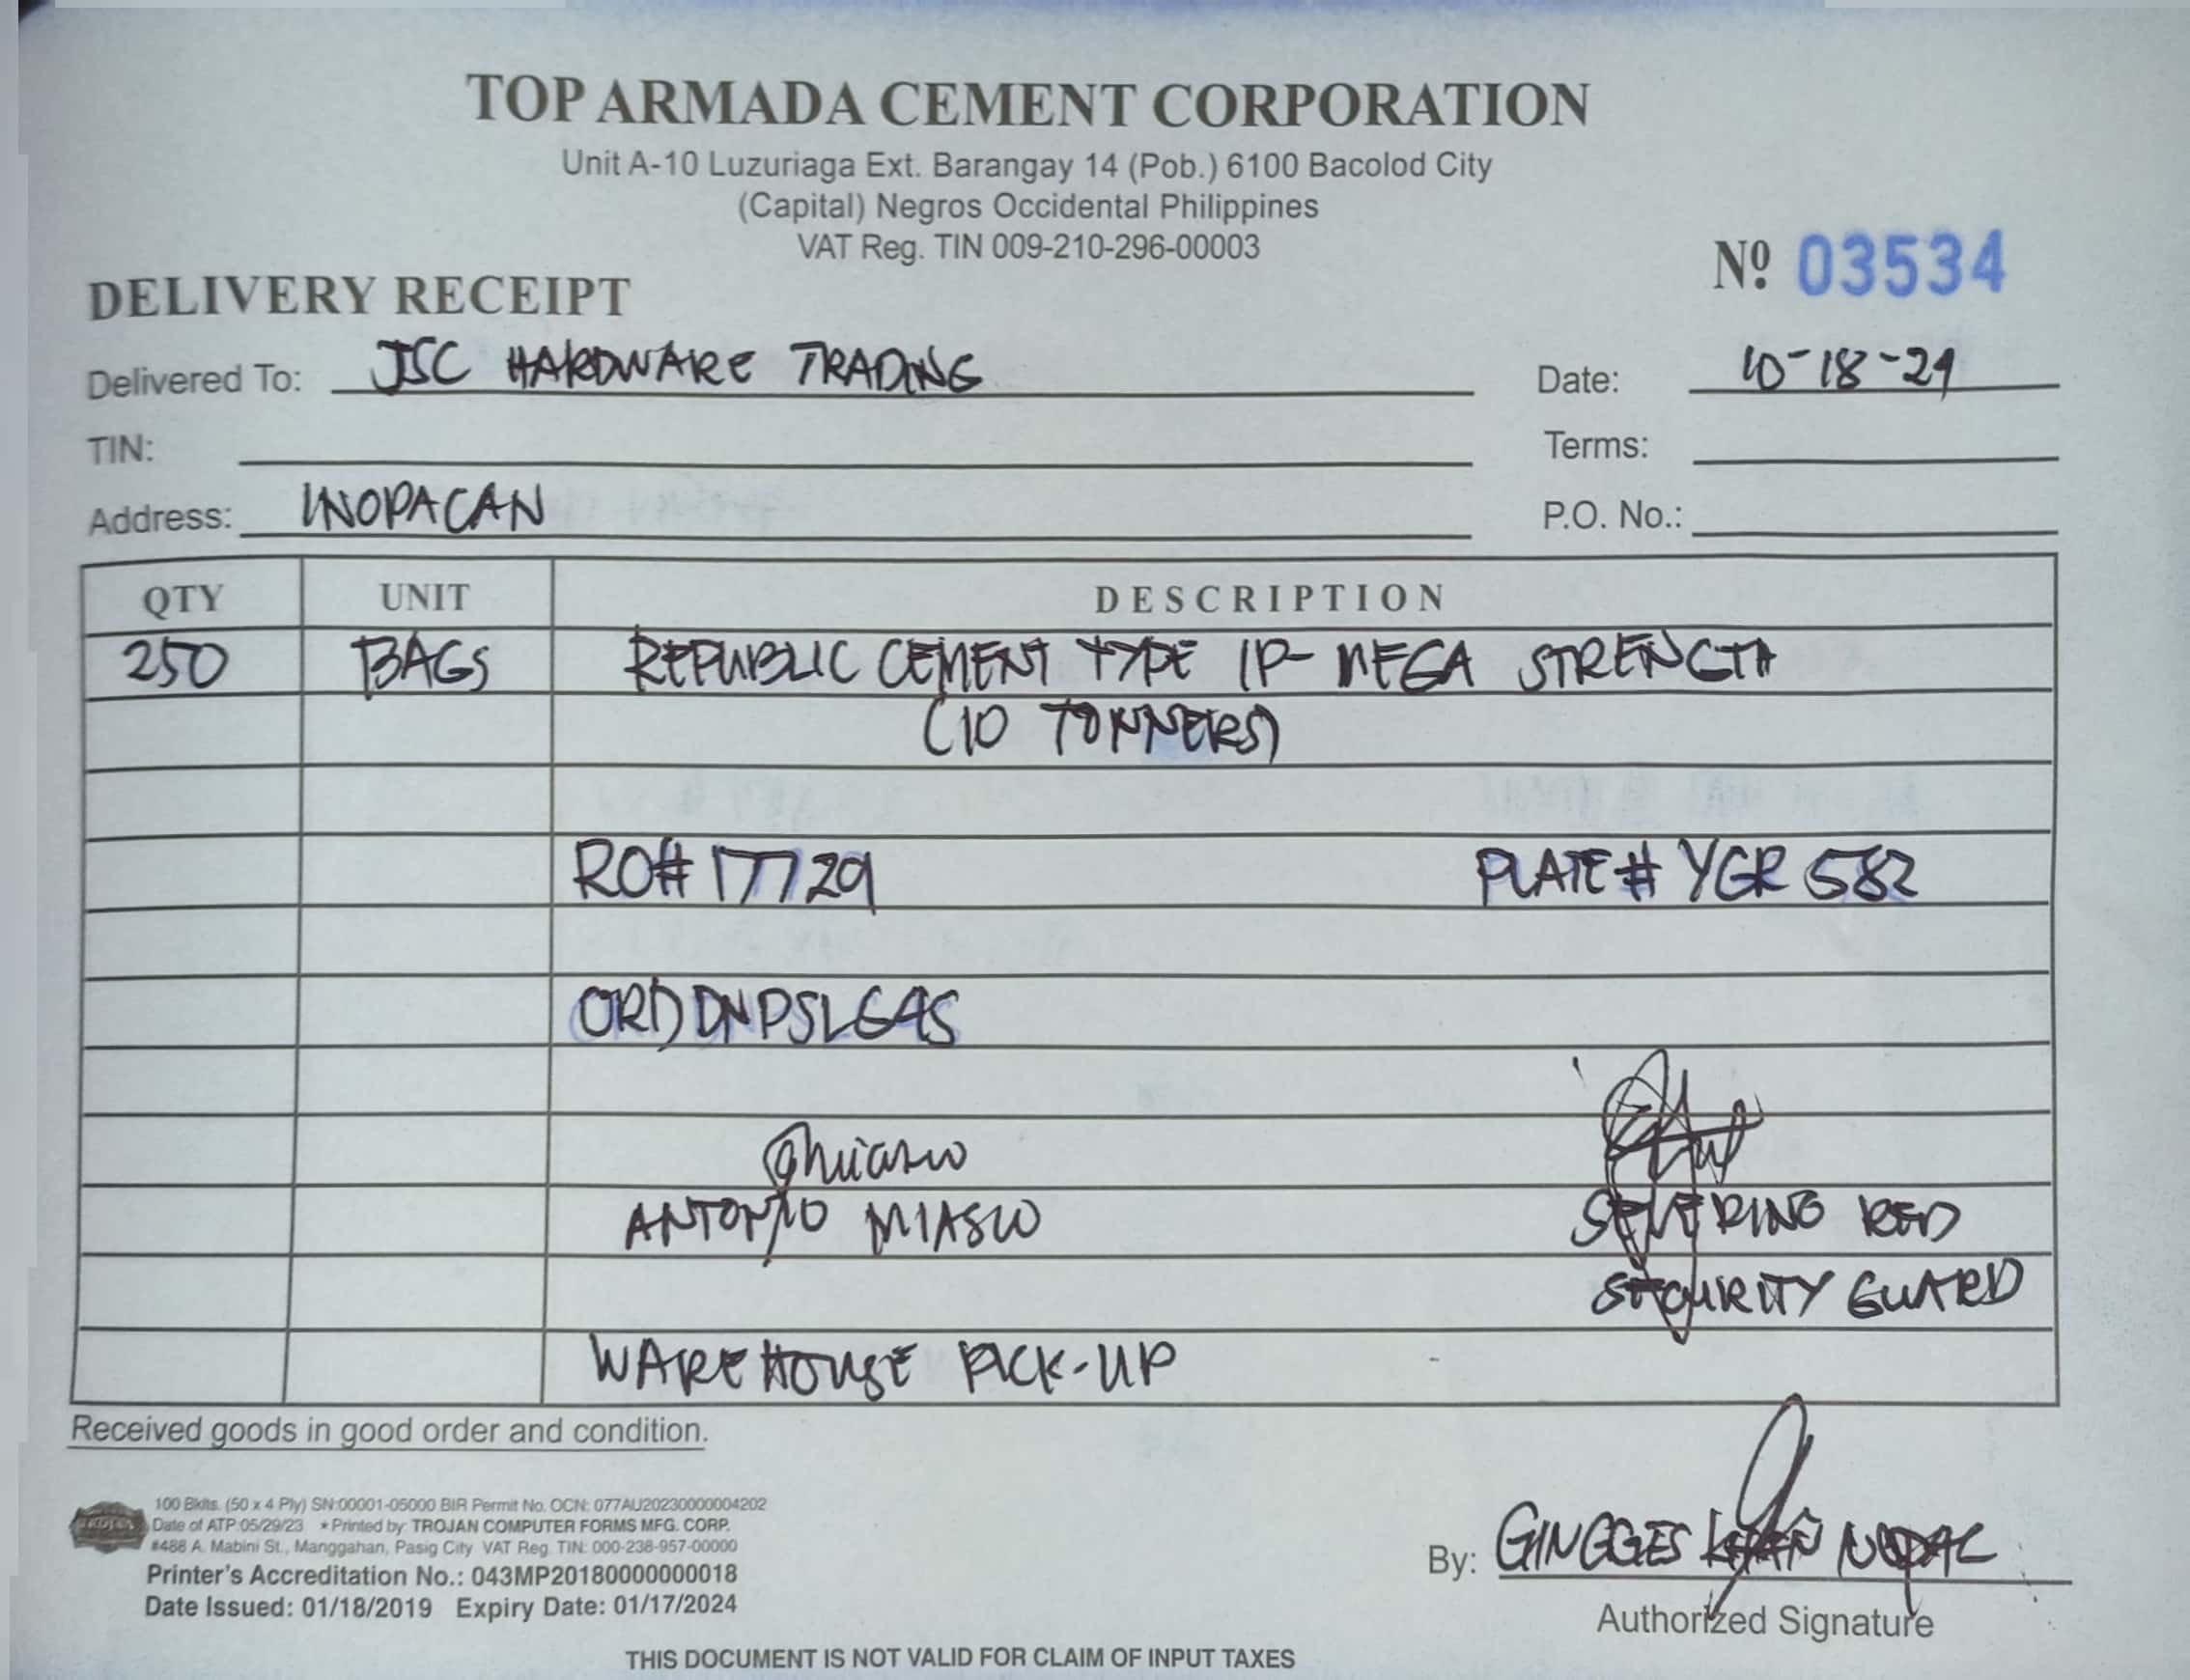 TOP ARMADA CEMENT CORPORATION
Unit A-10 Luzuriaga Ext. Barangay 14 (Pob.) 6100 Bacolod City
(Capital) Negros Occidental Philippines
VAT Reg. TIN 009-210-296-00003
Nº 03534
DELIVERY RECEIPT
Delivered To: JSC HARDWARE TRADING Date: 10-18-24
TIN: Terms:
Address: INOPACAN P.O. No.:
QTY UNIT DESCRIPTION
250 BAGS REPUBLIC CEMENT TYPE 1P- MEGA STRENGTH
(10 TONNERS)
RO# 17729 PLATE # YGR 582
ANTONIO MIASCO SEVERINO RED
SECURITY GUARD
WAREHOUSE PICK-UP
Received goods in good order and condition.
100 Bklts. (50 x 4 Ply) SN:00001-05000 BIR Permit No. OCN: 077AU20230000004202
Date of ATP:05/29/23 * Printed by: TROJAN COMPUTER FORMS MFG. CORP.
#488 A. Mabini St., Manggahan, Pasig City VAT Reg. TIN: 000-238-957-00000
Printer's Accreditation No.: 043MP20180000000018
Date Issued: 01/18/2019 Expiry Date: 01/17/2024
By: GINGGES KHAN
Authorized Signature
THIS DOCUMENT IS NOT VALID FOR CLAIM OF INPUT TAXES